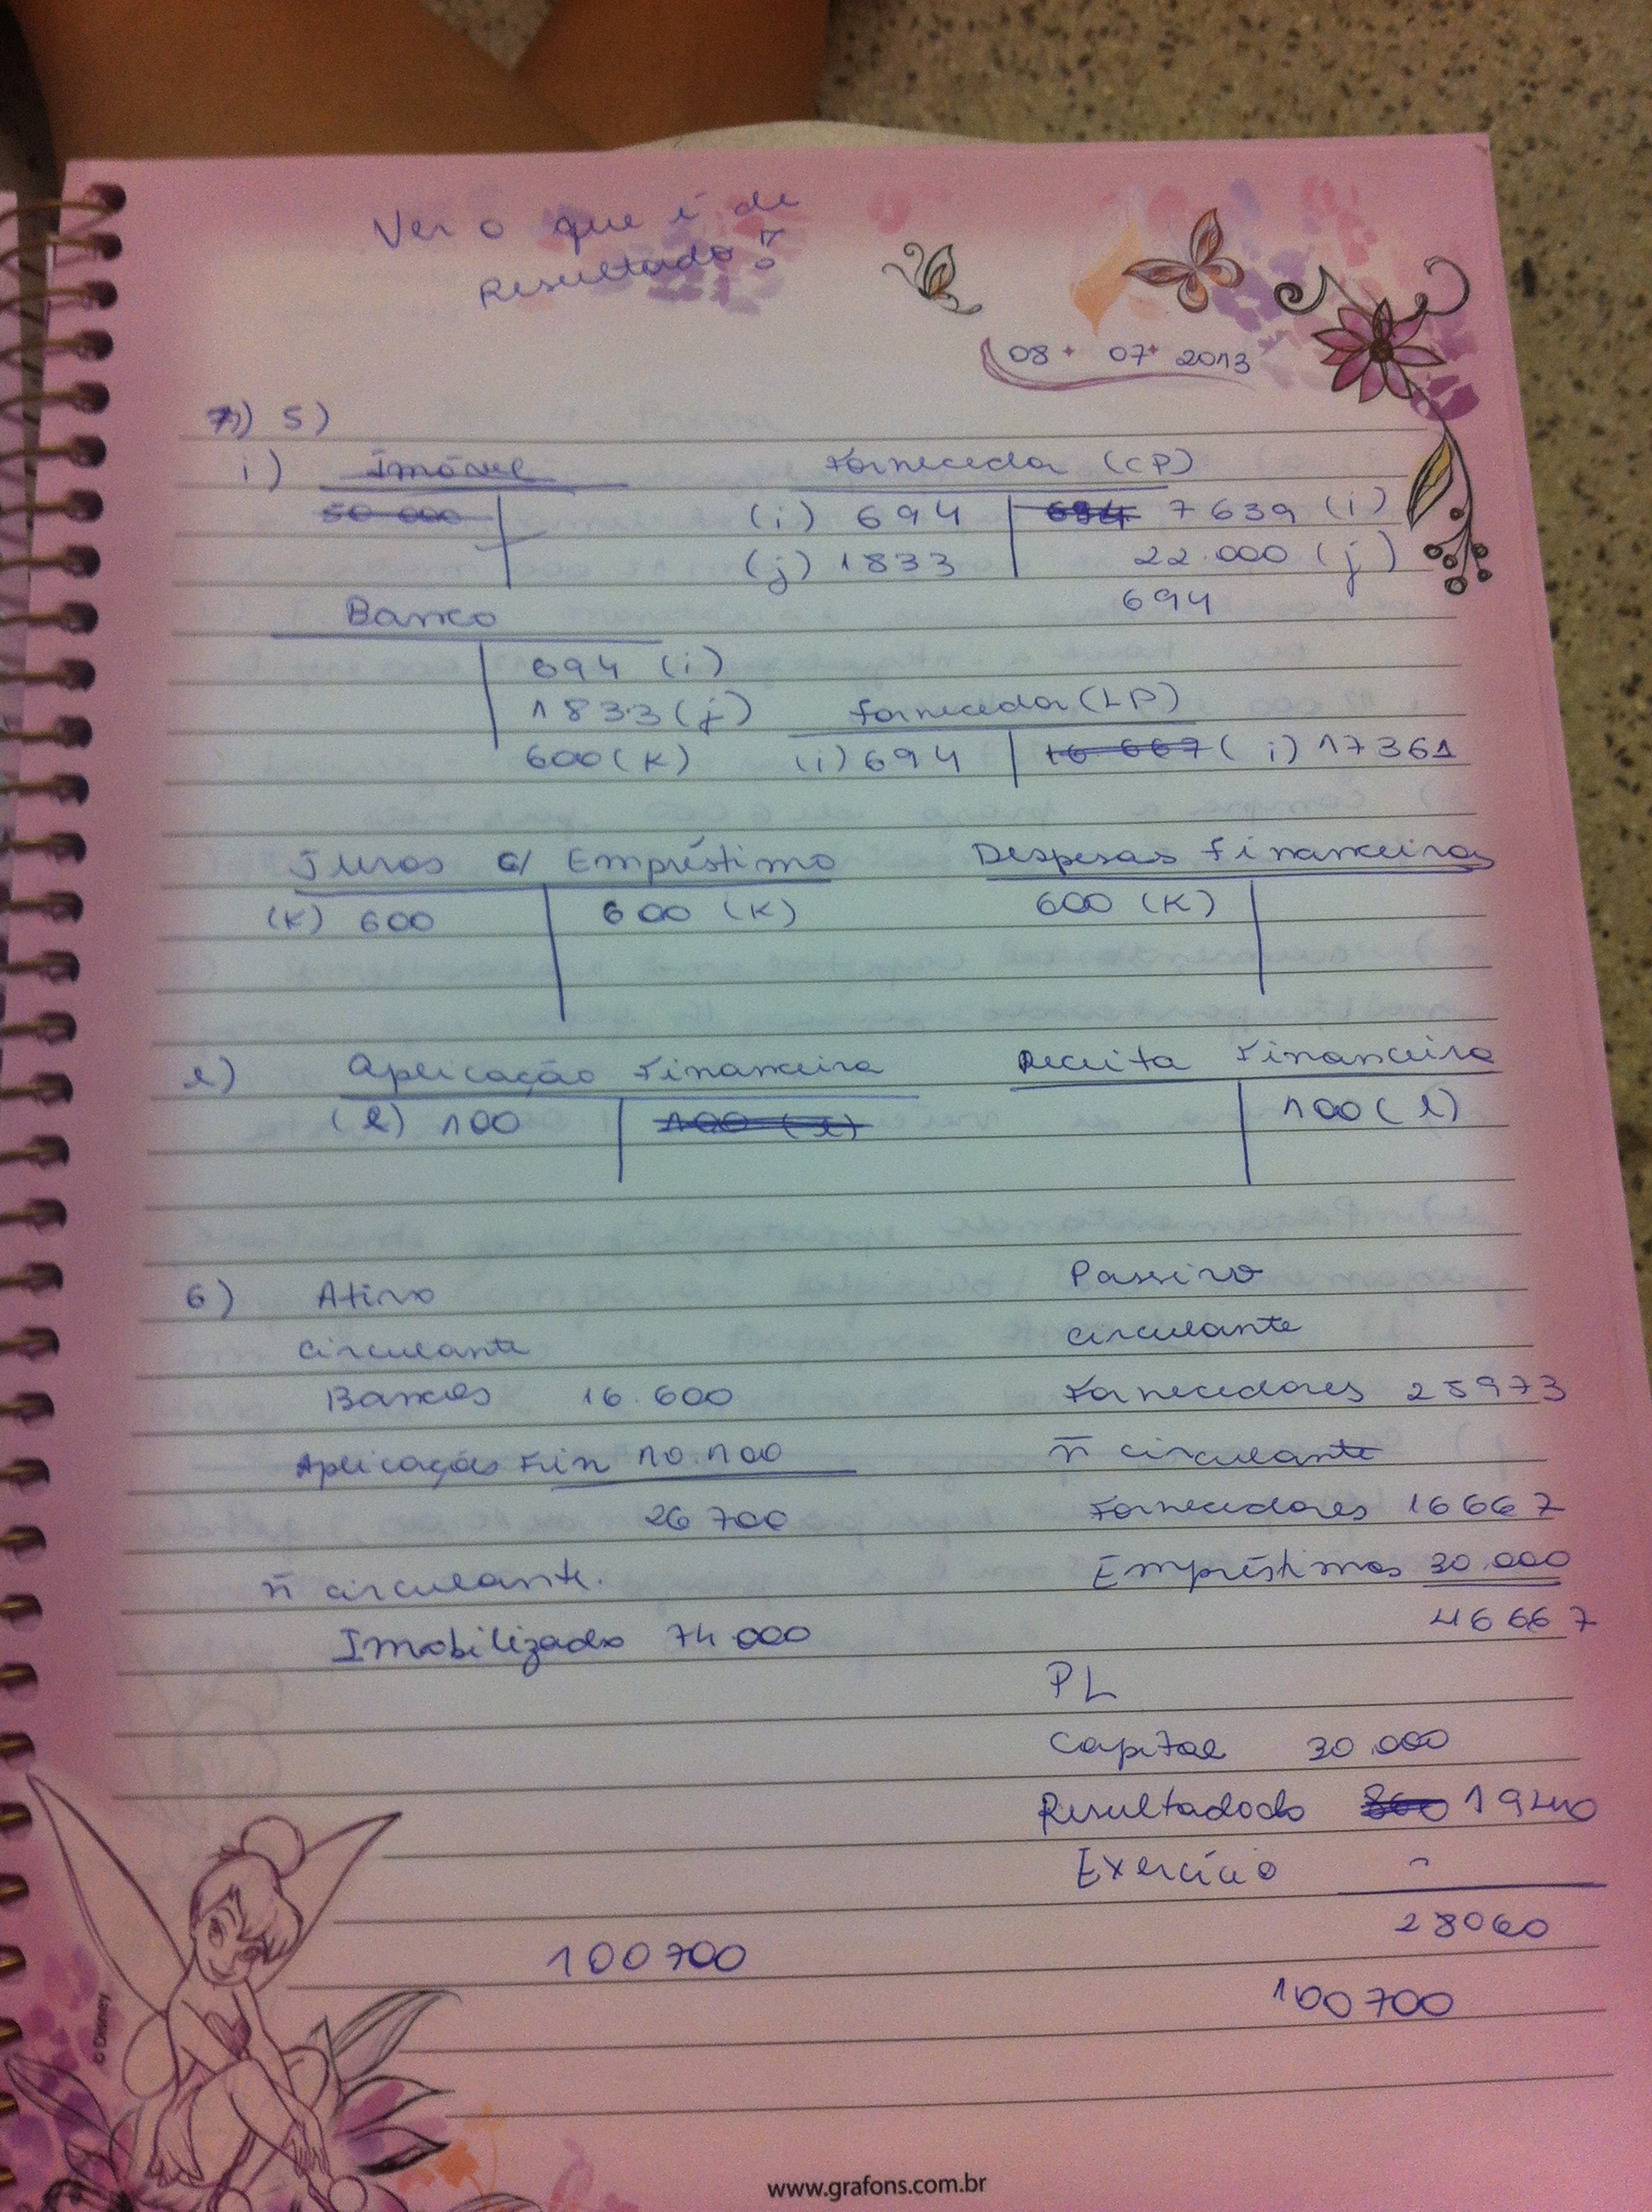 Ver o que é de
Resultado?
08 07 2013
7) 5)
i) Imóvel Fornecedor (CP)
50 000 (i) 694 694 7639 (i)
(j) 1833 22.000 (j)
694
Banco
694 (i)
1833 (j) fornecedor (LP)
600 (K) (i) 694 16 667 (i) 17361
Juros c/ Empréstimo Despesas Financeiras
(K) 600 600 (K) 600 (K)
l) Aplicação Financeira Receita Financeira
(l) 100 100 (l) 100 (l)
6) Ativo Passivo
circulante circulante
Bancos 16.600 Fornecedores 25973
Aplicações Fin 10.100 ñ circulante
26 700 Fornecedores 16667
ñ circulante. Empréstimos 30.000
Imobilizado 74.000 46667
PL
Capital 30.000
Resultadodo 860 1940
Exercício -
28060
100700 100700
© Disney
www.grafons.com.br